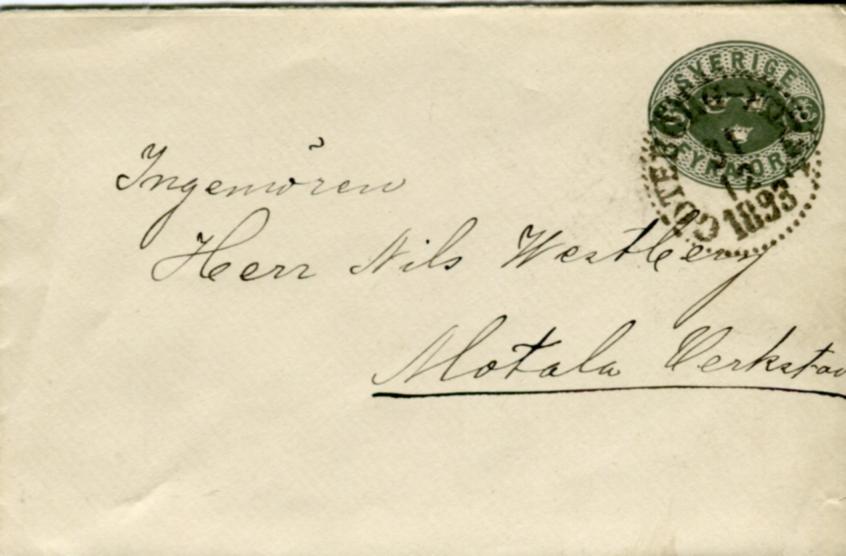 SVERIGE
FYRA ÖRE
GÖTEBORG
31
12
1893
Ingeniören
Herr Nils Westberg
Motala Verkstad